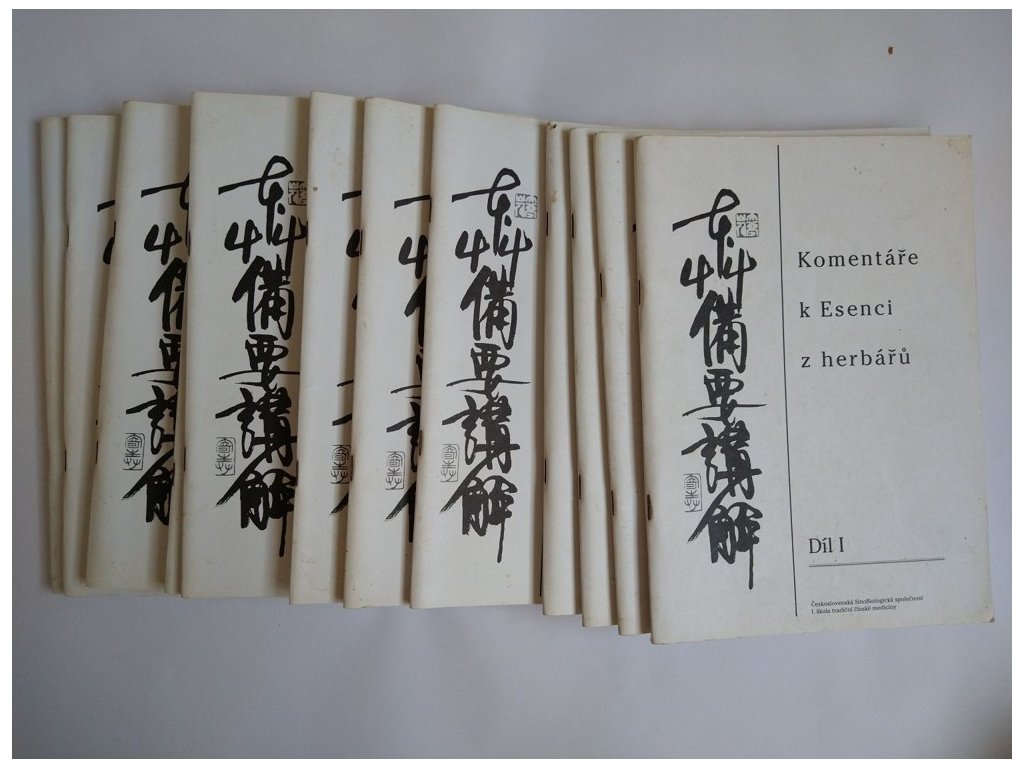 本艸備要講解
本艸備要講解
本艸備要講解
Komentáře
k Esenci
z herbářů
Díl I
Československá SinoBiologická společnost
I. škola tradiční čínské medicíny